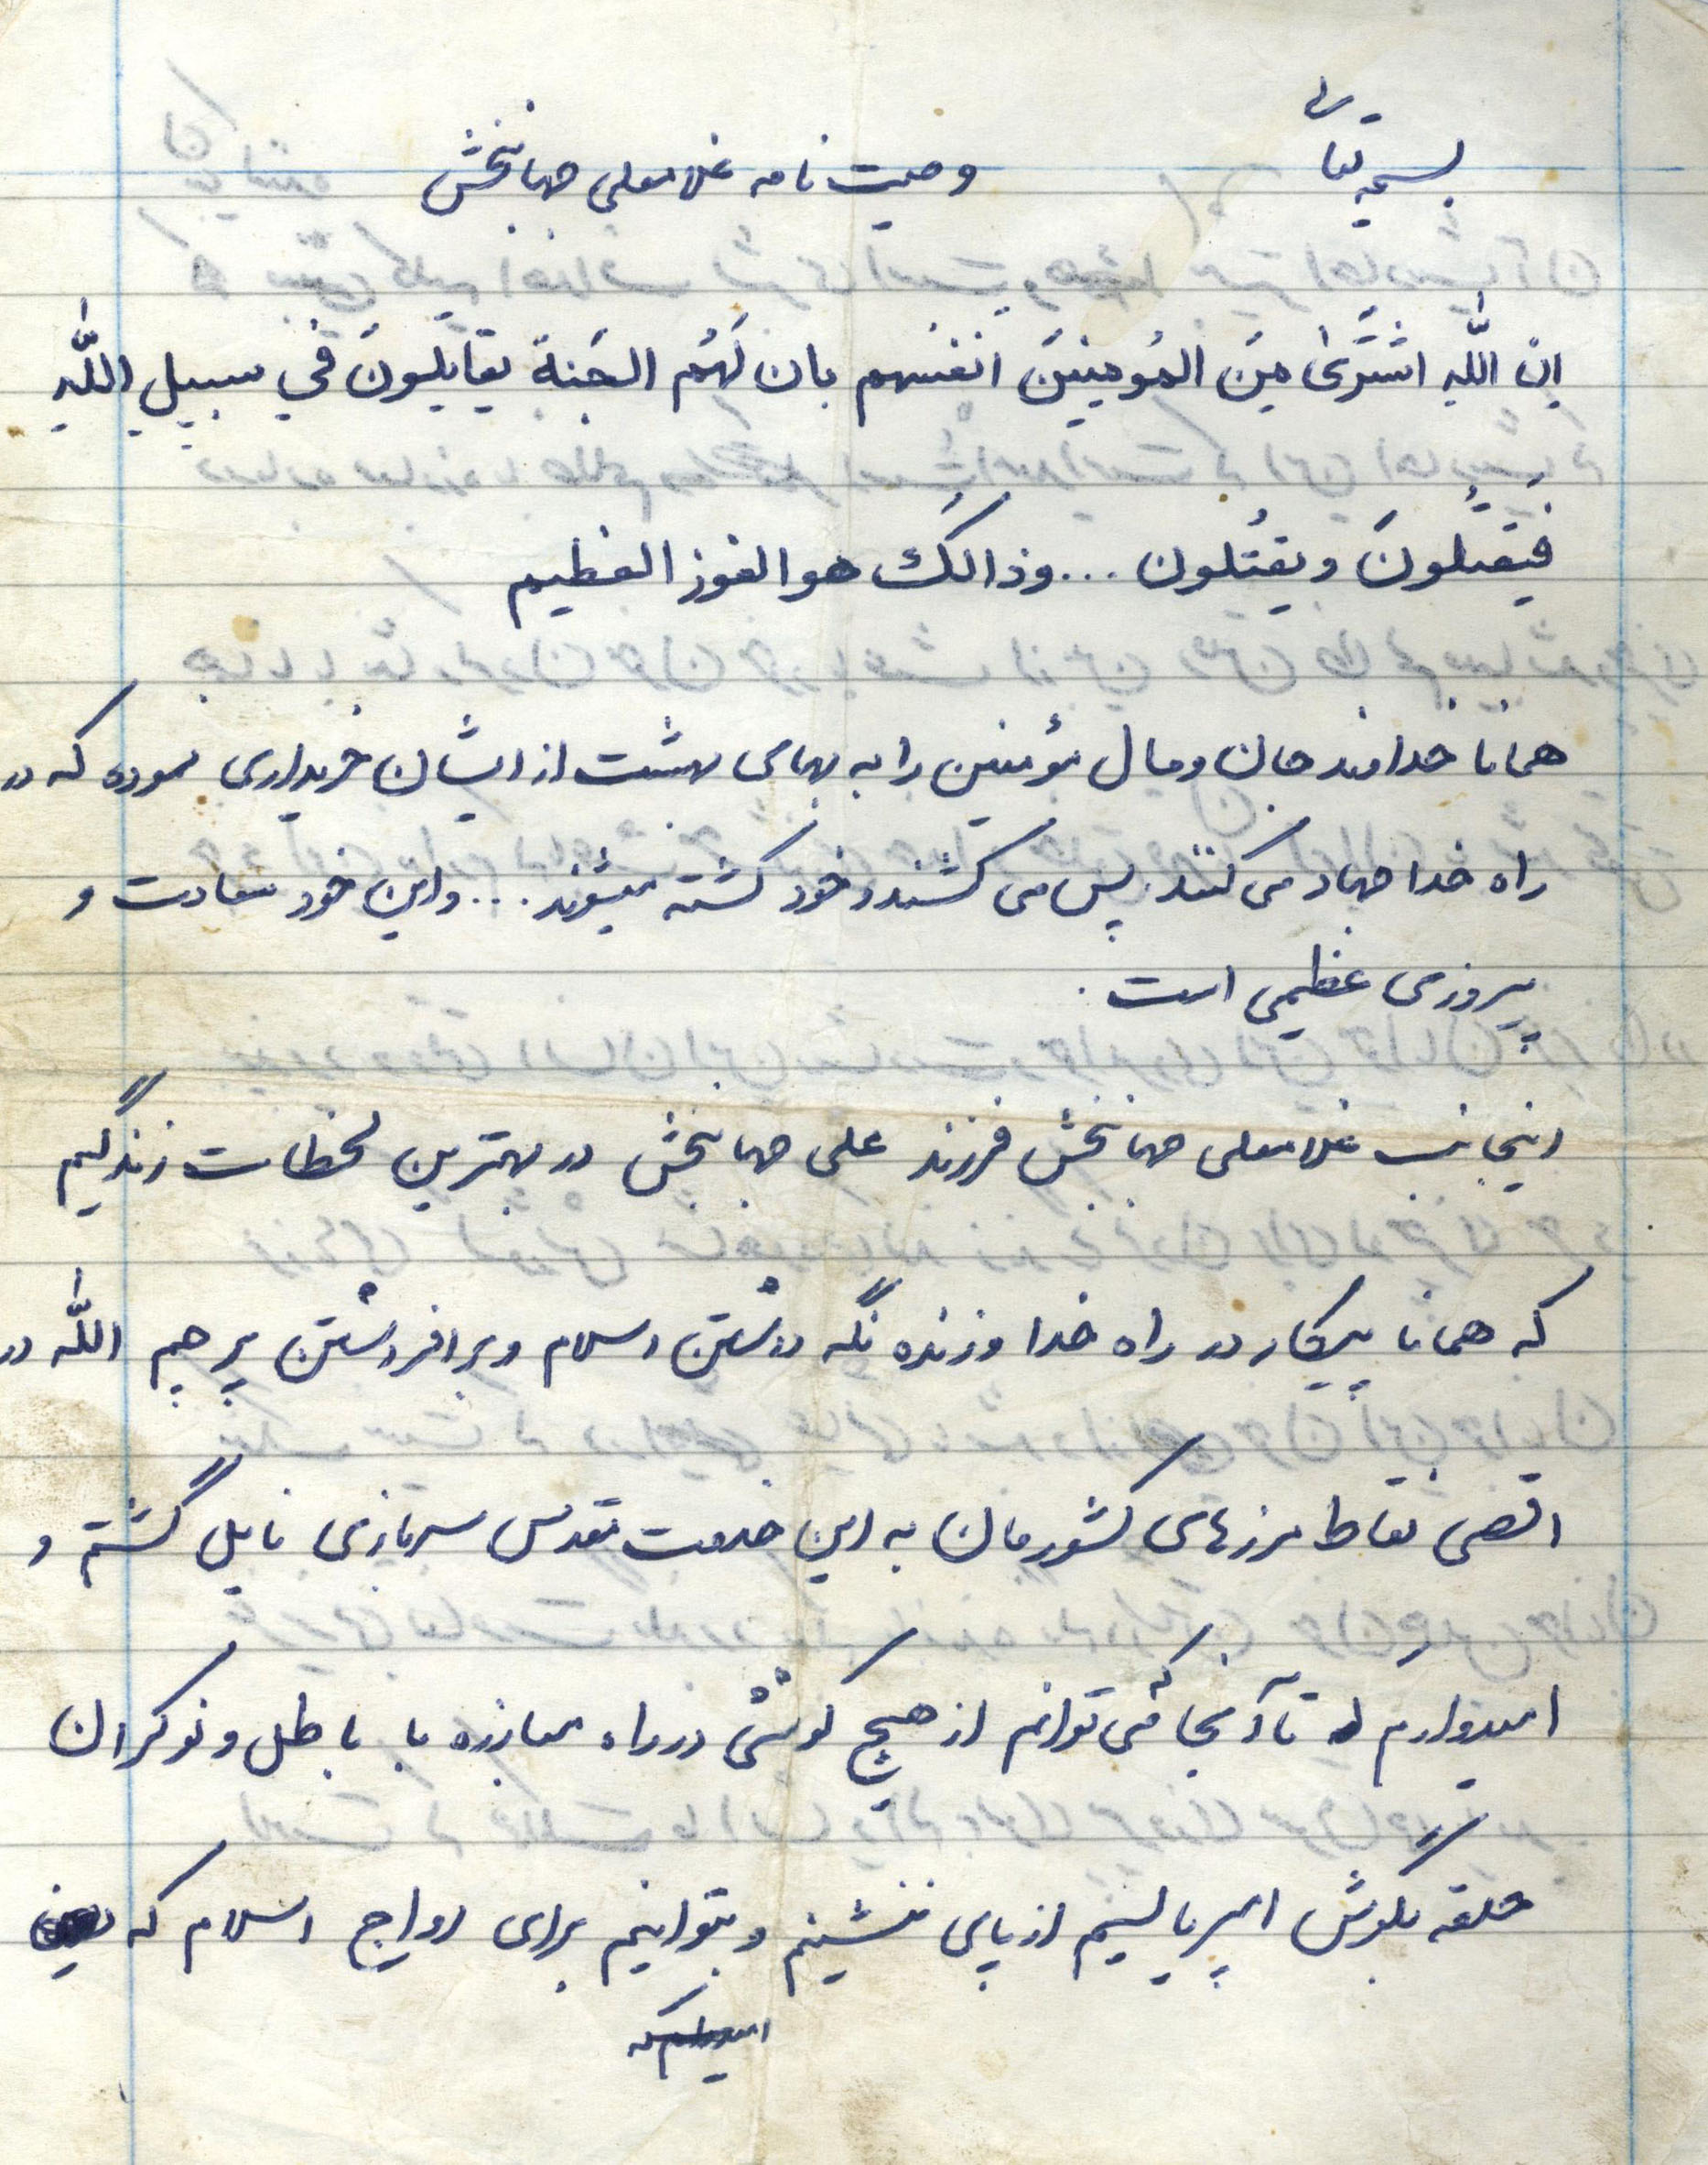 بسمه تعالی
وصیت نامه غلامعلی جهانبخش
اِنّ اللّٰهِ اشتَرَیٰ مِنَ المُومِنینَ انفسهم بان لَهُم الجَنة یقاتِلُونَ فی سبیلِ اللّٰهِ
فَیَقتُلُونَ و یقتُلون ... وذالکَ هو الفوز العظیم
همانا خداوند جان ومال مؤمنین را به بهای بهشت از ایشان خریداری نموده که در
راه خدا جهاد می کنند پس می کشند و خود کشته میشوند ... و این خود سعادت و
پیروزی عظیمی است .
اینجانب غلامعلی جهانبخش فرزند علی جهانبخش در بهترین لحظات زندگیم
که همانا پیکار در راه خدا و زنده نگه داشتن اسلام و برافراشتن پرچم اللّٰه در
اقصی نقاط مرزهای کشورمان به این خدمت مقدس سربازی نایل گشتم و
امیدوارم تا آنجا که می توانم از هیچ کوششی در راه مبارزه با باطل و نوکران
حلقه بگوش امپریالیسم از پای ننشینم و بتوانیم برای رواج اسلام که
امیدوارم که